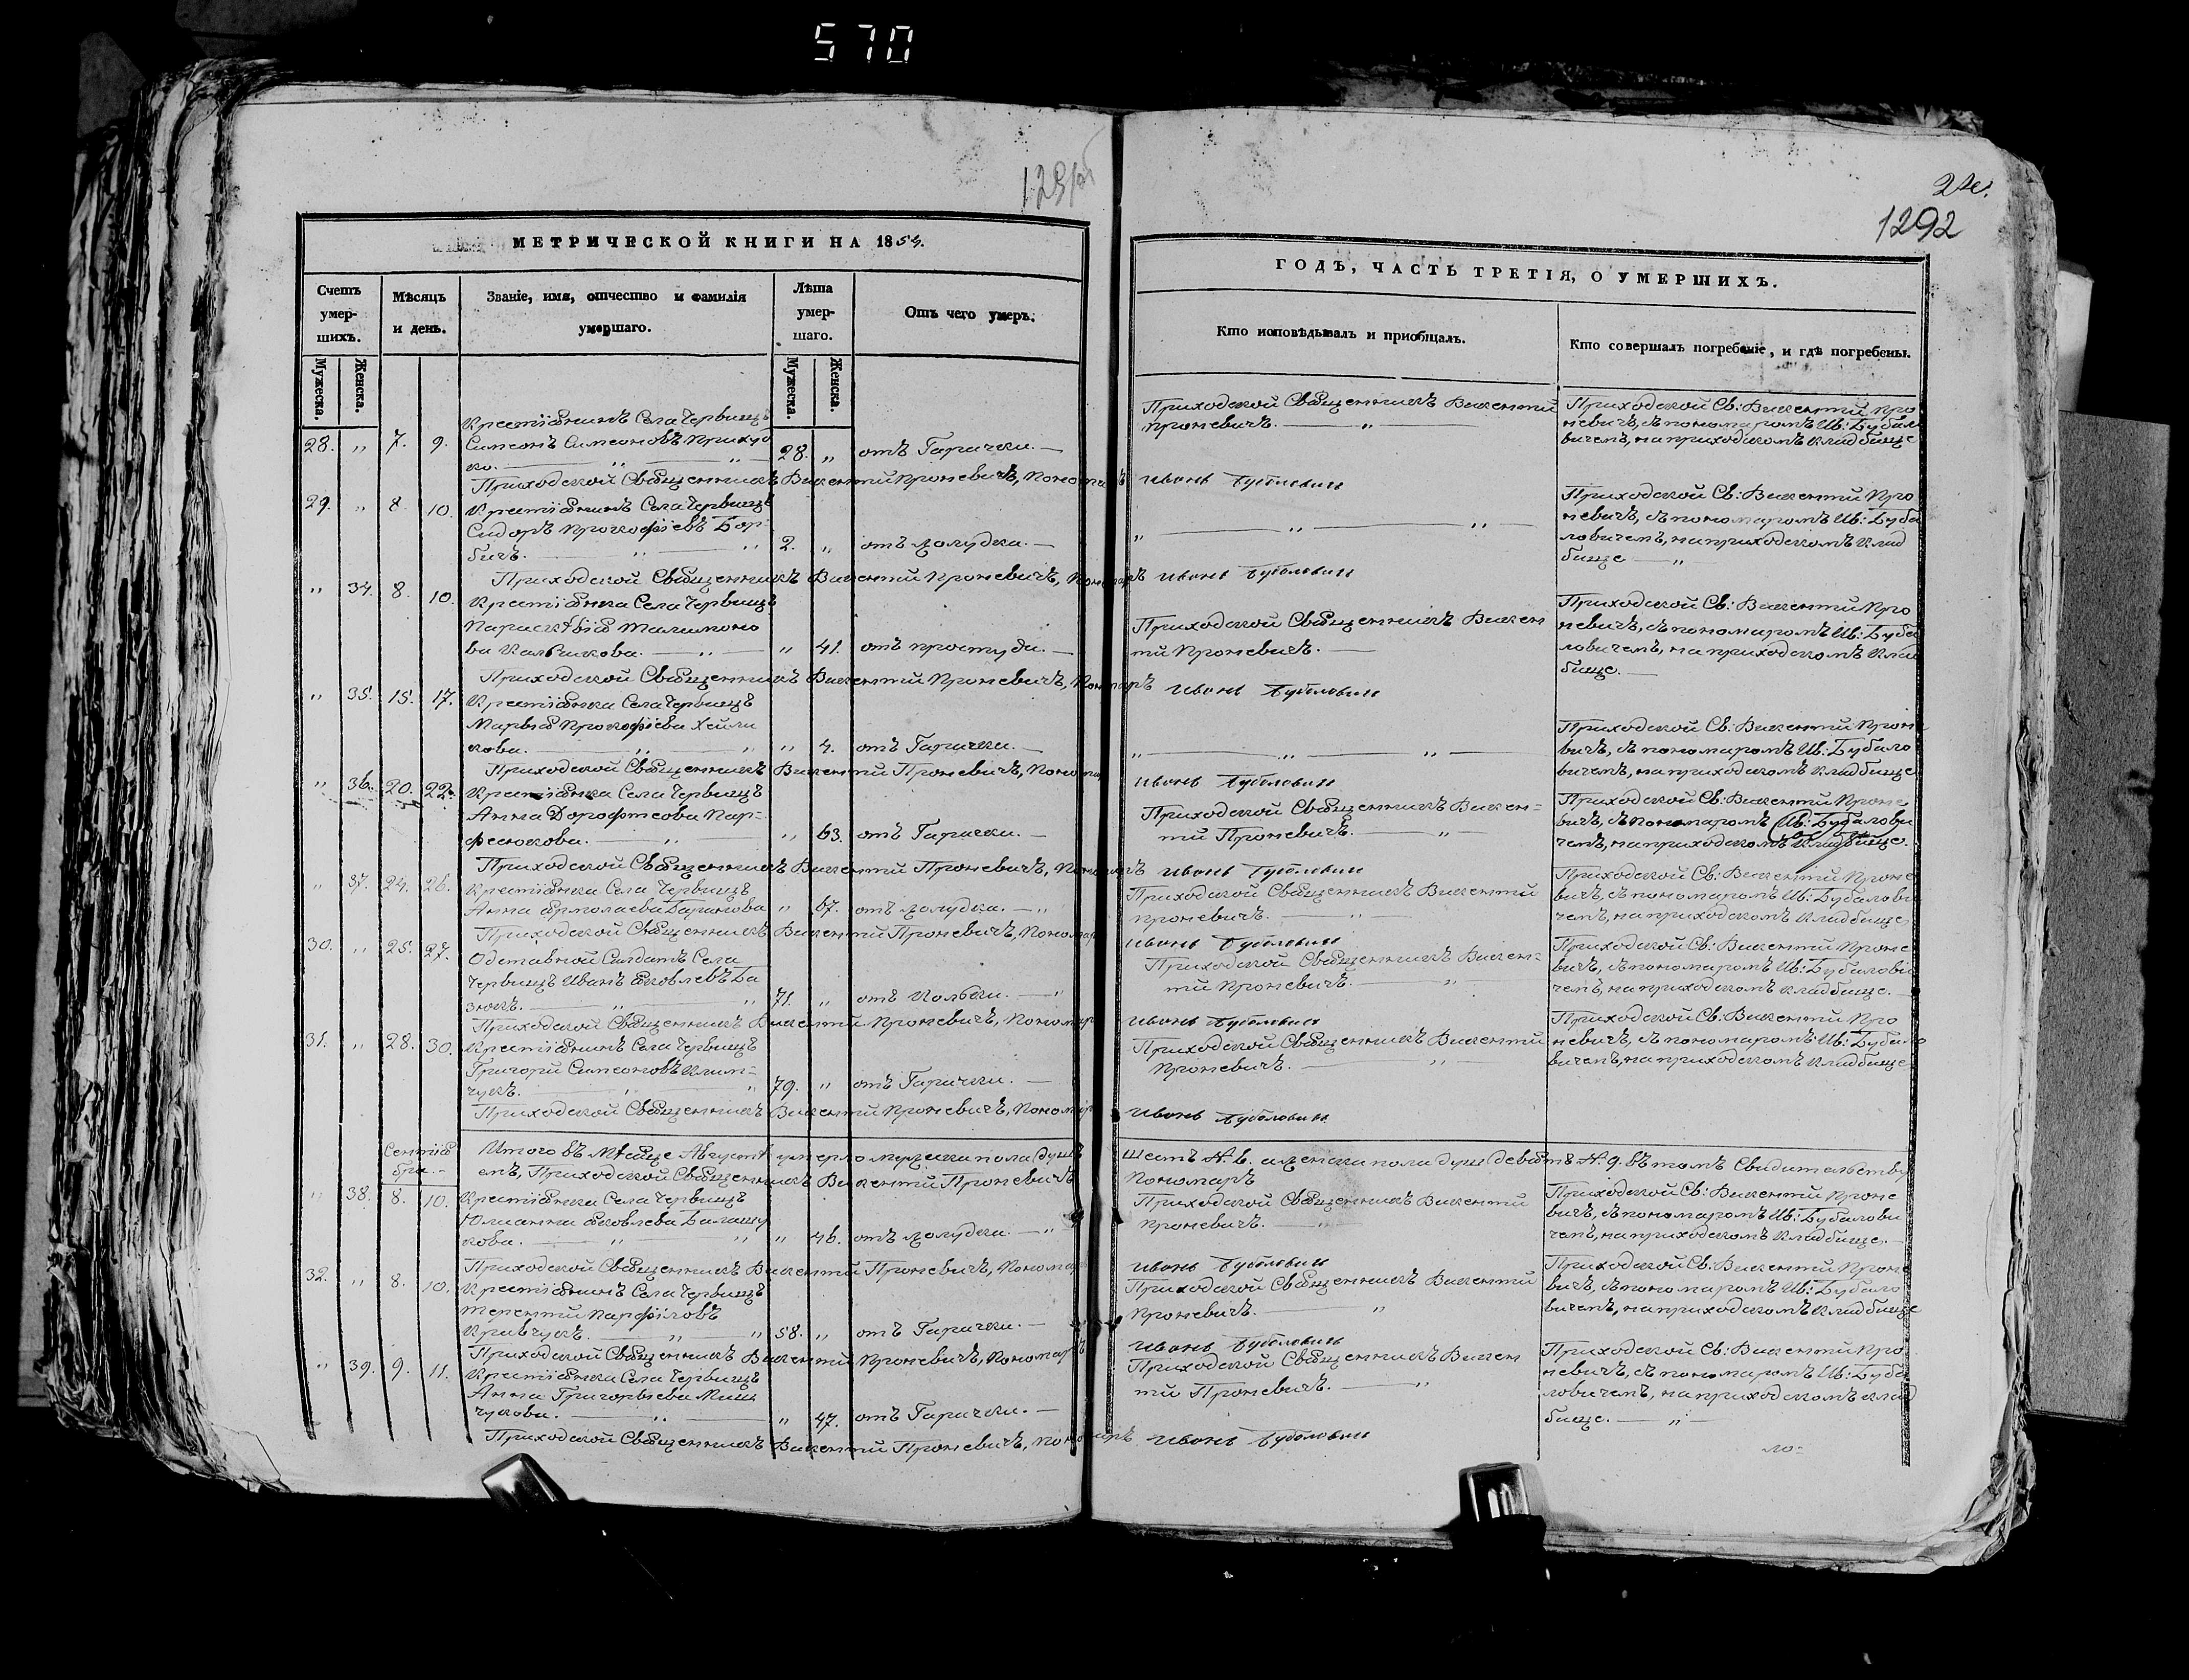 570
1292
МЕТРИЧЕСКОЙ КНИГИ НА 1854.
Счетъ умер-шихъ.
Мужеска.
Женска.
Мѣсяцъ и день.
Званіе, имя, отчество и фамилія умершаго.
Лѣта умер-шаго.
Мужеска.
Женска.
Отъ чего умеръ.
ГОДЪ, ЧАСТЬ ТРЕТІЯ, О УМЕРШИХЪ.
Кто исповѣдывалъ и приобщалъ.
Кто совершалъ погребеніе, и гдѣ погребены.
28. „ 7. 9. Крестіянинъ Села Червищъ
Симеонъ Симеоновъ
28. „ отъ Гарячки.
Приходской Священникъ Викентій Проневичъ.
Приходской Св: Викентій Про
невичъ, съ пономаромъ Ив: Бубало
вичемъ, на приходскомъ кладбище
Приходской Священникъ Викентій Проневичъ, Пономаръ Иванъ Бубаловичъ
29. „ 8. 10. Крестіянинъ Села Червищъ
Сидоръ Прокофіевъ Бор-
бичъ.
2. „ отъ золудка.
Приходской Св: Викентій Про
невичъ, съ пономаромъ Ив: Буба
ловичемъ, на приходскомъ клад
бище
Приходской Священникъ Викентій Проневичъ, Пономаръ Иванъ Бубаловичъ
„ 34. 8. 10. Крестіянка Села Червищъ
Параскѣвія
„ 41. отъ простуди.
Приходской Священникъ Викен
тій Проневичъ.
Приходской Св: Викентій Про
невичъ, съ пономаромъ Ив: Буба
ловичемъ, на приходскомъ клад
бище.
Приходской Священникъ Викентій Проневичъ, Пономаръ Иванъ Бубаловичъ
„ 35. 15. 17. Крестіянка Села Червищъ
Марья Прокофіева Хейли
кова.
„ 4. отъ Гарячки.
Приходской Св: Викентій Проне
вичъ, съ пономаромъ Ив: Бубало
вичемъ, на приходскомъ кладбище
Приходской Священникъ Викентій Проневичъ, Пономаръ Иванъ Бубаловичъ
„ 36. 20. 22. Крестіянка Села Червищъ
Анна Дорофтеова Пар-
фенюкова.
„ 63. отъ Гарячки.
Приходской Священникъ Викен=
тій Проневичъ.
Приходской Св: Викентій Проне
вичъ, съ пономаромъ Ив: Бубалови
чемъ, на приходскомъ кладбище.
Приходской Священникъ Викентій Проневичъ, Пономаръ Иванъ Бубаловичъ
„ 37. 24. 26. Крестіянка Села Червищъ
Анна Ярмолаева Баранова
„ 67. отъ золудка.
Приходской Священникъ Викентій
Проневичъ.
Приходской Св: Викентій Проне
вичъ, съ пономаромъ Ив: Бубалови
чемъ, на приходскомъ кладбище
Приходской Священникъ Викентій Проневичъ, Пономаръ Иванъ Бубаловичъ
30. „ 25. 27. Одставной Салдатъ Села
Червищъ Иванъ Яковлевъ Ба
зюкъ.
71. „ отъ Кольки.
Приходской Священникъ Викен=
тій Проневичъ.
Приходской Св: Викентій Проне
вичъ, съ пономаромъ Ив: Бубалові
чемъ, на приходскомъ кладбище.
Приходской Священникъ Викентій Проневичъ, Пономаръ Иванъ Бубаловичъ
31. „ 28. 30. Крестіянинъ Села Червищъ
Григорій Симеоновъ Клим=
чукъ.
79. „ отъ Гарячки.
Приходской Священникъ Викентій
Проневичъ.
Приходской Св: Викентій Про
невичъ, съ пономаромъ Ив: Бубало
вичемъ, на приходскомъ кладбище
Приходской Священникъ Викентій Проневичъ, Пономаръ Иванъ Бубаловичъ
Итого въ Мѣсяце Августѣ умерло мужеска пола душъ шесть №. 6. а женска пола душ девять №. 9. въ томъ Свидительству
емъ, Приходской Священникъ Викентій Проневичъ Пономаръ
Сентія
бря.
„ 38. 8. 10. Крестіянка Села Червищъ
Юлианна Яковлева Балашу
кова.
„ 46. отъ золудка.
Приходской Священникъ Викентій
Проневичъ.
Приходской Св: Викентій Проне
вичъ, съ пономаромъ Ив: Бубалови
чемъ, на приходскомъ кладбище.
Приходской Священникъ Викентій Проневичъ, Пономаръ Иванъ Бубаловичъ
32. „ 8. 10. Крестіянинъ Села Червищъ
Терентій Парфіловъ
Кравчукъ.
58. „ отъ Гарячки.
Приходской Священникъ Викентій
Проневичъ.
Приходской Св: Викентій Проне
вичъ, съ пономаромъ Ив: Бубало
вичемъ, на приходскомъ кладбище
Приходской Священникъ Викентій Проневичъ, Пономаръ Иванъ Бубаловичъ
„ 39. 9. 11. Крестіянка Села Червищъ
Анна Григорьева Мищ
чукова.
„ 47. отъ Гарячки.
Приходской Священникъ Викен
тій Проневичъ.
Приходской Св: Викентій Про
невичъ, съ пономаромъ Ив: Буба
ловичемъ, на приходскомъ клад
бище.
Приходской Священникъ Викентій Проневичъ, Пономаръ Иванъ Бубаловичъ